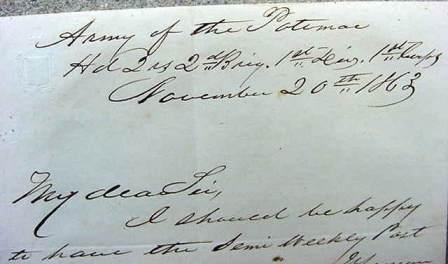 Army of the Potomac
Hd Qrs 2d Brig. 1st Div. 1st Corps
November 20th 1863
My dear Sir,
I should be happy
to have the Semi Weekly Post